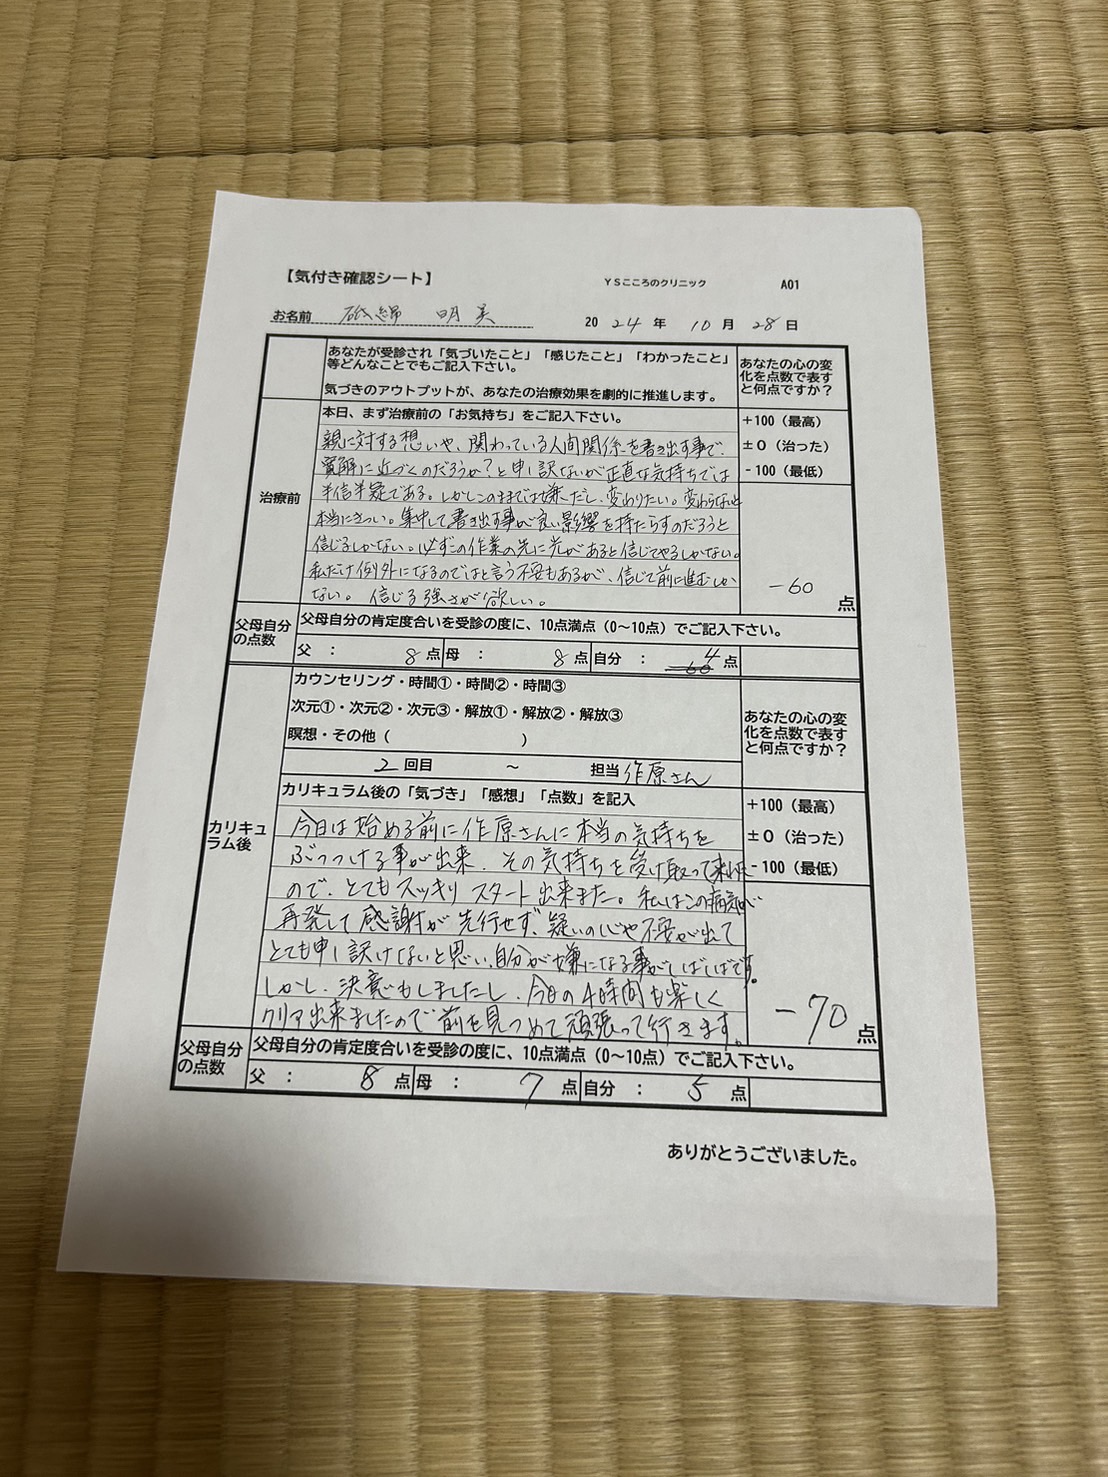 【気付き確認シート】 YSこころのクリニック A01
お名前 砥綿 明美 2024年10月28日
あなたが受診され「気づいたこと」「感じたこと」「わかったこと」
等どんなことでもご記入下さい。
気づきのアウトプットが、あなたの治療効果を劇的に推進します。
あなたの心の変
化を点数で表す
と何点ですか？
治療前
本日、まず治療前の「お気持ち」をご記入下さい。
親に対する想いや、関わっている人間関係を書き出す事で、
寛解に近づくのだろうか？と申し訳ないが正直な気持ちでは
半信半疑である。しかしこのままでは嫌だし、変わりたい。変わらないと
本当にきつい。集中して書き出す事が良い影響を持たらすのだろうと
信じるしかない。必ずこの作業の先に光があると信じてやるしかない。
私だけ例外になるのではと言う不安もあるが、信じて前に進むしか
ない。 信じる強さが欲しい。
+100（最高）
±0（治った）
-100（最低）
-60 点
父母自分
の点数
父母自分の肯定度合いを受診の度に、10点満点（0～10点）でご記入下さい。
父： 8点 母： 8点 自分： 4点
カリキュ
ラム後
カウンセリング・時間①・時間②・時間③
次元①・次元②・次元③・解放①・解放②・解放③
瞑想・その他（ ）
2回目 ～ 担当 作原さん
あなたの心の変
化を点数で表す
と何点ですか？
カリキュラム後の「気づき」「感想」「点数」を記入
今日は始める前に作原さんに本当の気持ちを
ぶつける事が出来、その気持ちを受け取って来れた
ので、とてもスッキリスタート出来ました。私はこの病気が
再発して感謝が先行せず、疑いの心や不安が出て
とても申し訳けないと思い、自分が嫌になる事がしばしばです。
しかし、決意もしましたし、今日の4時間も楽しく
クリア出来ましたので前を見つめて頑張って行きます。
+100（最高）
±0（治った）
-100（最低）
-70 点
父母自分
の点数
父母自分の肯定度合いを受診の度に、10点満点（0～10点）でご記入下さい。
父： 8点 母： 7点 自分： 5点
ありがとうございました。